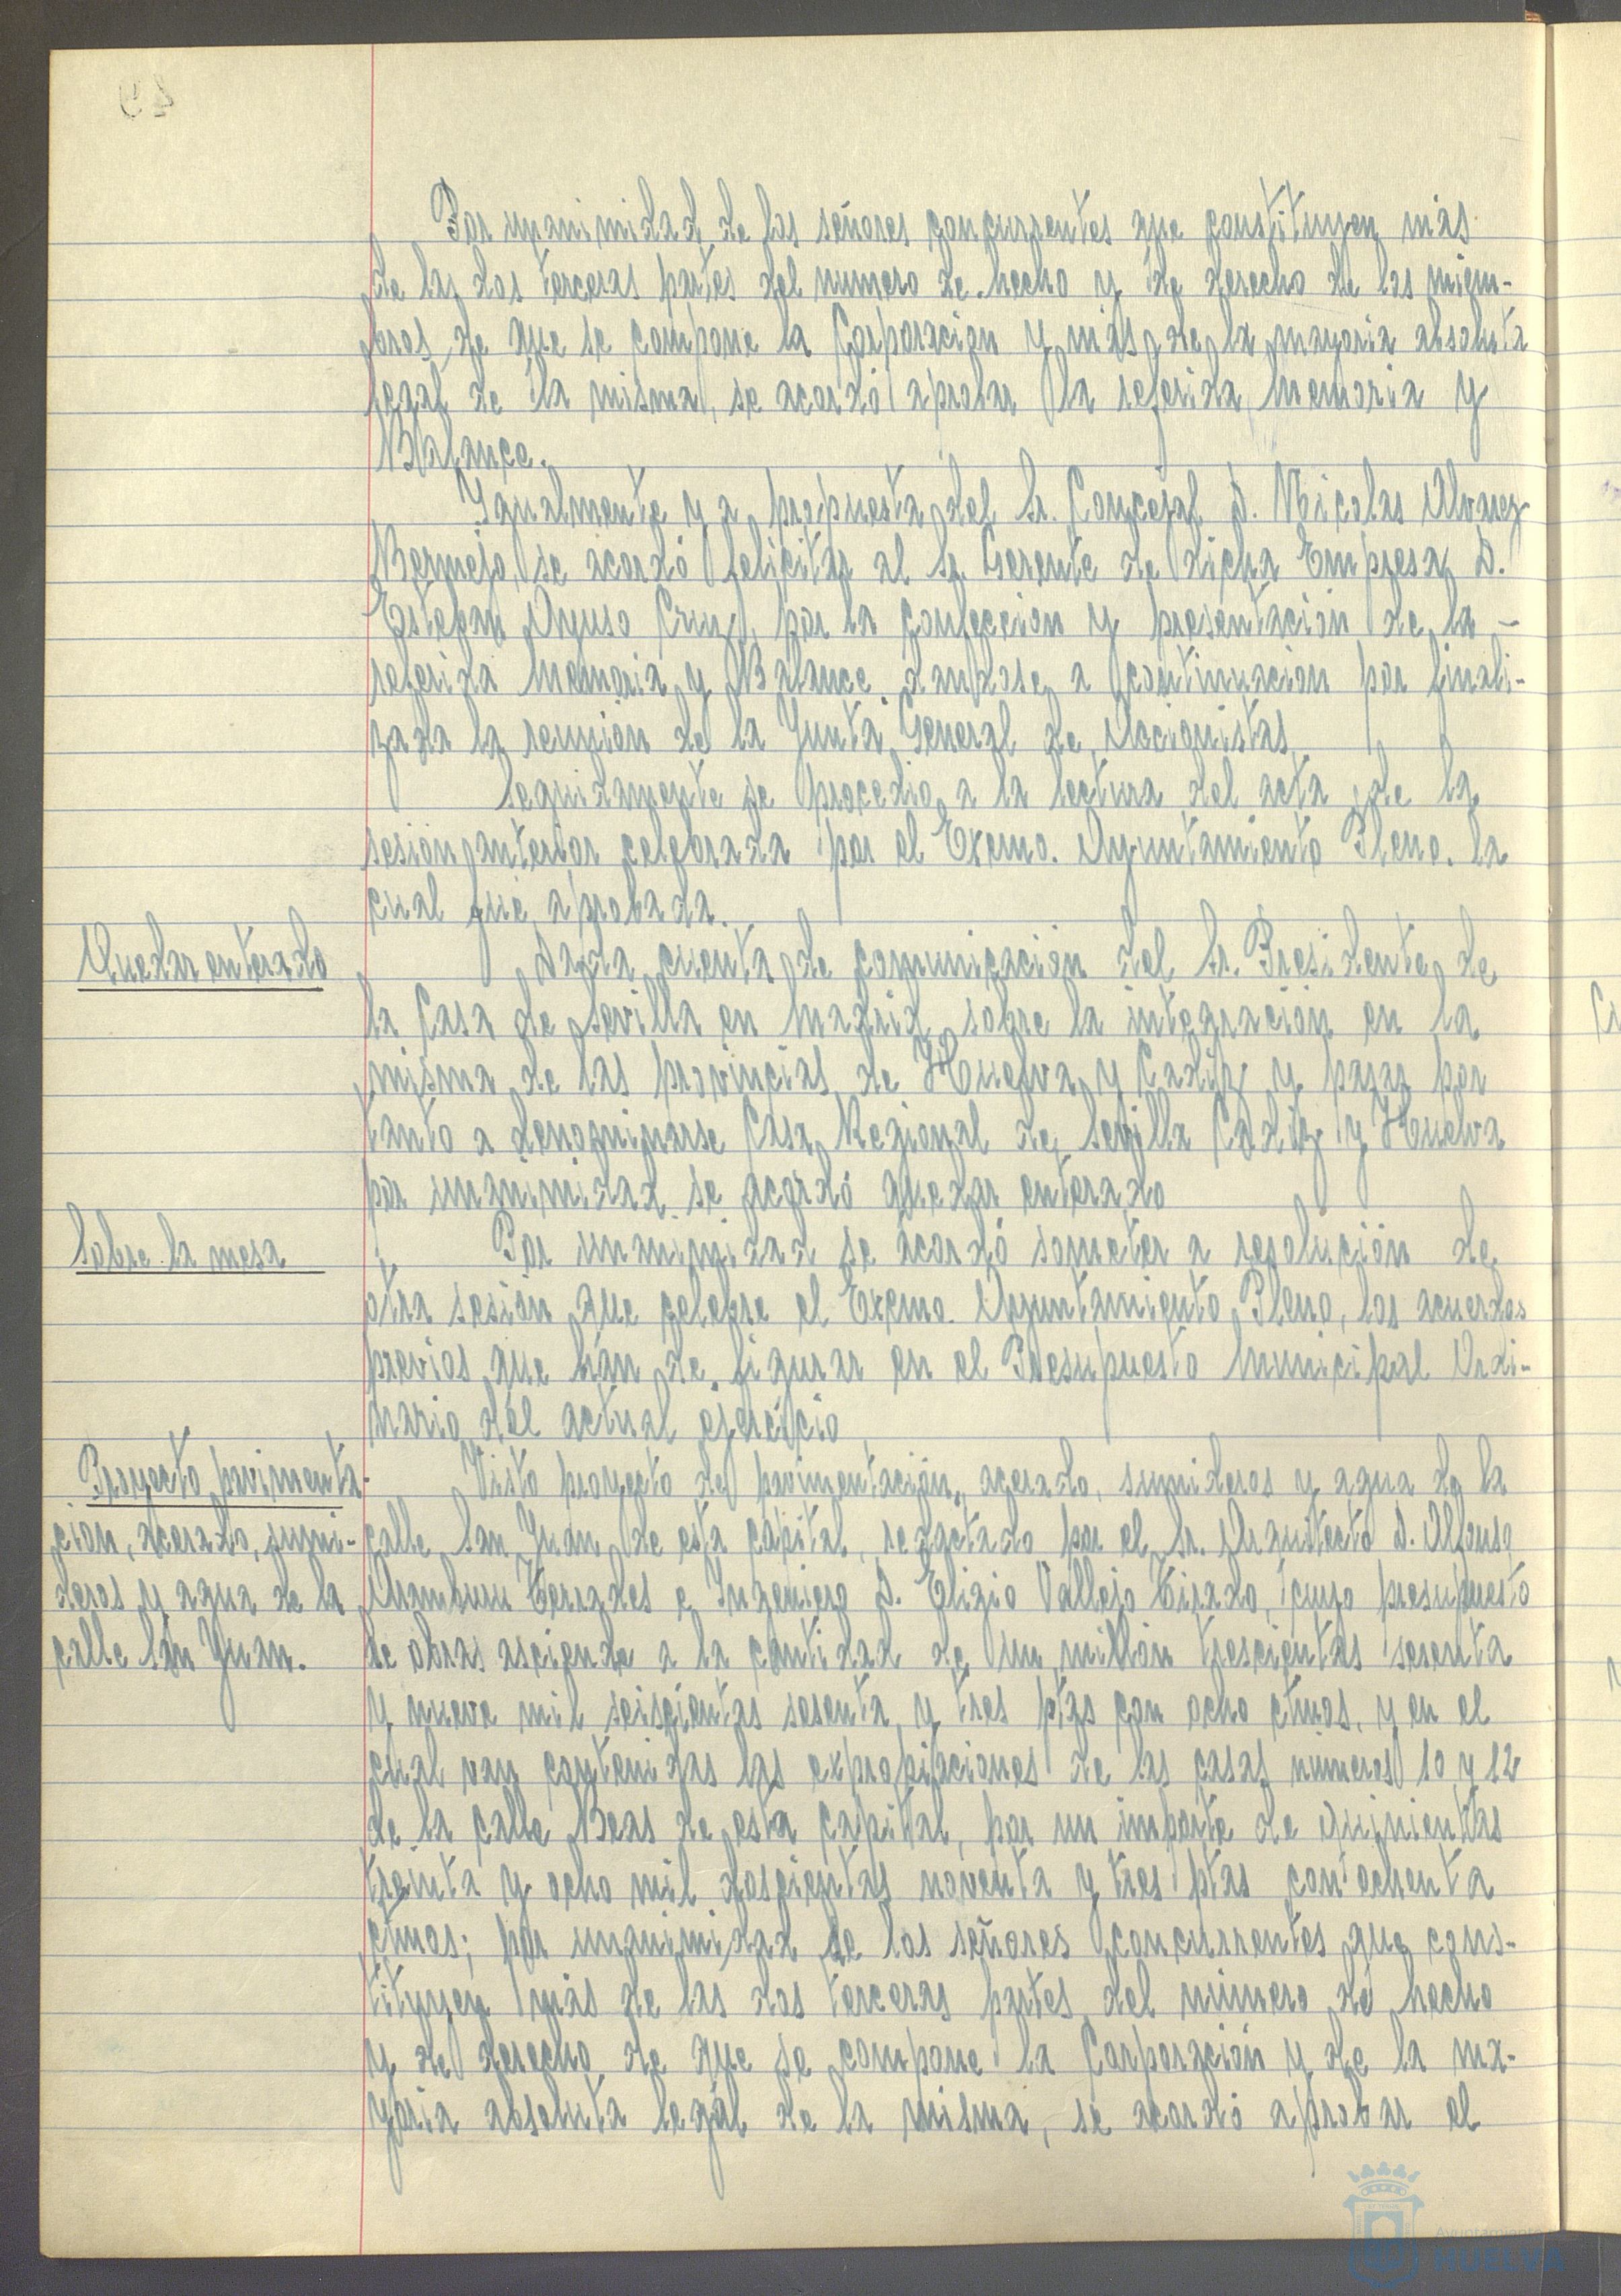 49
Por unanimidad de los señores concurrentes que constituyen más
de las dos terceras partes del numero de hecho y de derecho de los miem-
bros de que se compone la Corporación y más de la mayoria absoluta
legal de la misma, se acordó aprobar la referida Memoria y
Balance.
Igualmente y a propuesta del Sr. Concejal D. Nicolas Alvarez
Bermejo, se acordó felicitar al Sr. Gerente de dicha Empresa D.
Esteban Ayuso Cruz, por la confección y presentación de la -
referida Memoria y Balance, dandose a continuación por finali-
zada la reunión de la Junta General de Accionistas.
Seguidamente se procedio a la lectura del acta de la
sesion anterior celebrada por el Excmo. Ayuntamiento Pleno. la
cual fué aprobada.
Quedar enterado
Dada cuenta de comunicación del Sr. Presidente de
la Casa de Sevilla en Madrid sobre la integración en la
misma de las provincias de Huelva y Cadiz y pasar por
tanto a denominarse Casa Regional de Sevilla Cadiz y Huelva
por unanimidad se acordó quedar enterado
Sobre la mesa
Por unanimidad se acordó someter a resolución de
otra sesión que celebre el Excmo. Ayuntamiento Pleno, los acuerdos
previos que han de figurar en el Presupuesto Municipal Ordi-
nario del actual ejercicio
Proyecto pavimenta-
cion, acerado, sumi-
deros y agua de la
calle San Juan.
Visto proyecto de pavimentación, acerado, sumideros y agua de la
calle San Juan de esta capital, redactado por el Sr. Arquitecto D. Alfonso
Aramburu Terrades e Ingeniero D. Eligio Vallejo Tirado, cuyo presupuesto
de obras asciende a la cantidad de un millón trescientas sesenta
y nueve mil seiscientas sesenta y tres ptas con ocho ctmos, y en el
cual van contenidas las expropiaciones de las casas números 10 y 12
de la calle Beas de esta capital, por un importe de quinientas
treinta y ocho mil doscientas noventa y tres ptas con ochenta
ctmos; por unanimidad de los señores concurrentes que cons-
tituyen más de las dos terceras partes del número de hecho
y de derecho de que se compone la Corporación y de la ma-
yoria absoluta legal de la misma, se acordó aprobar el
Ayuntamiento
HUELVA